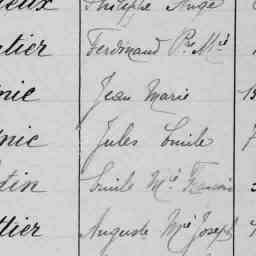 Philippe Ange
tier Ferdinand Pre Mie
nie Jean Marie
nie Jules Emile
tin Emile Mie François
ttier Auguste Mie Joseph